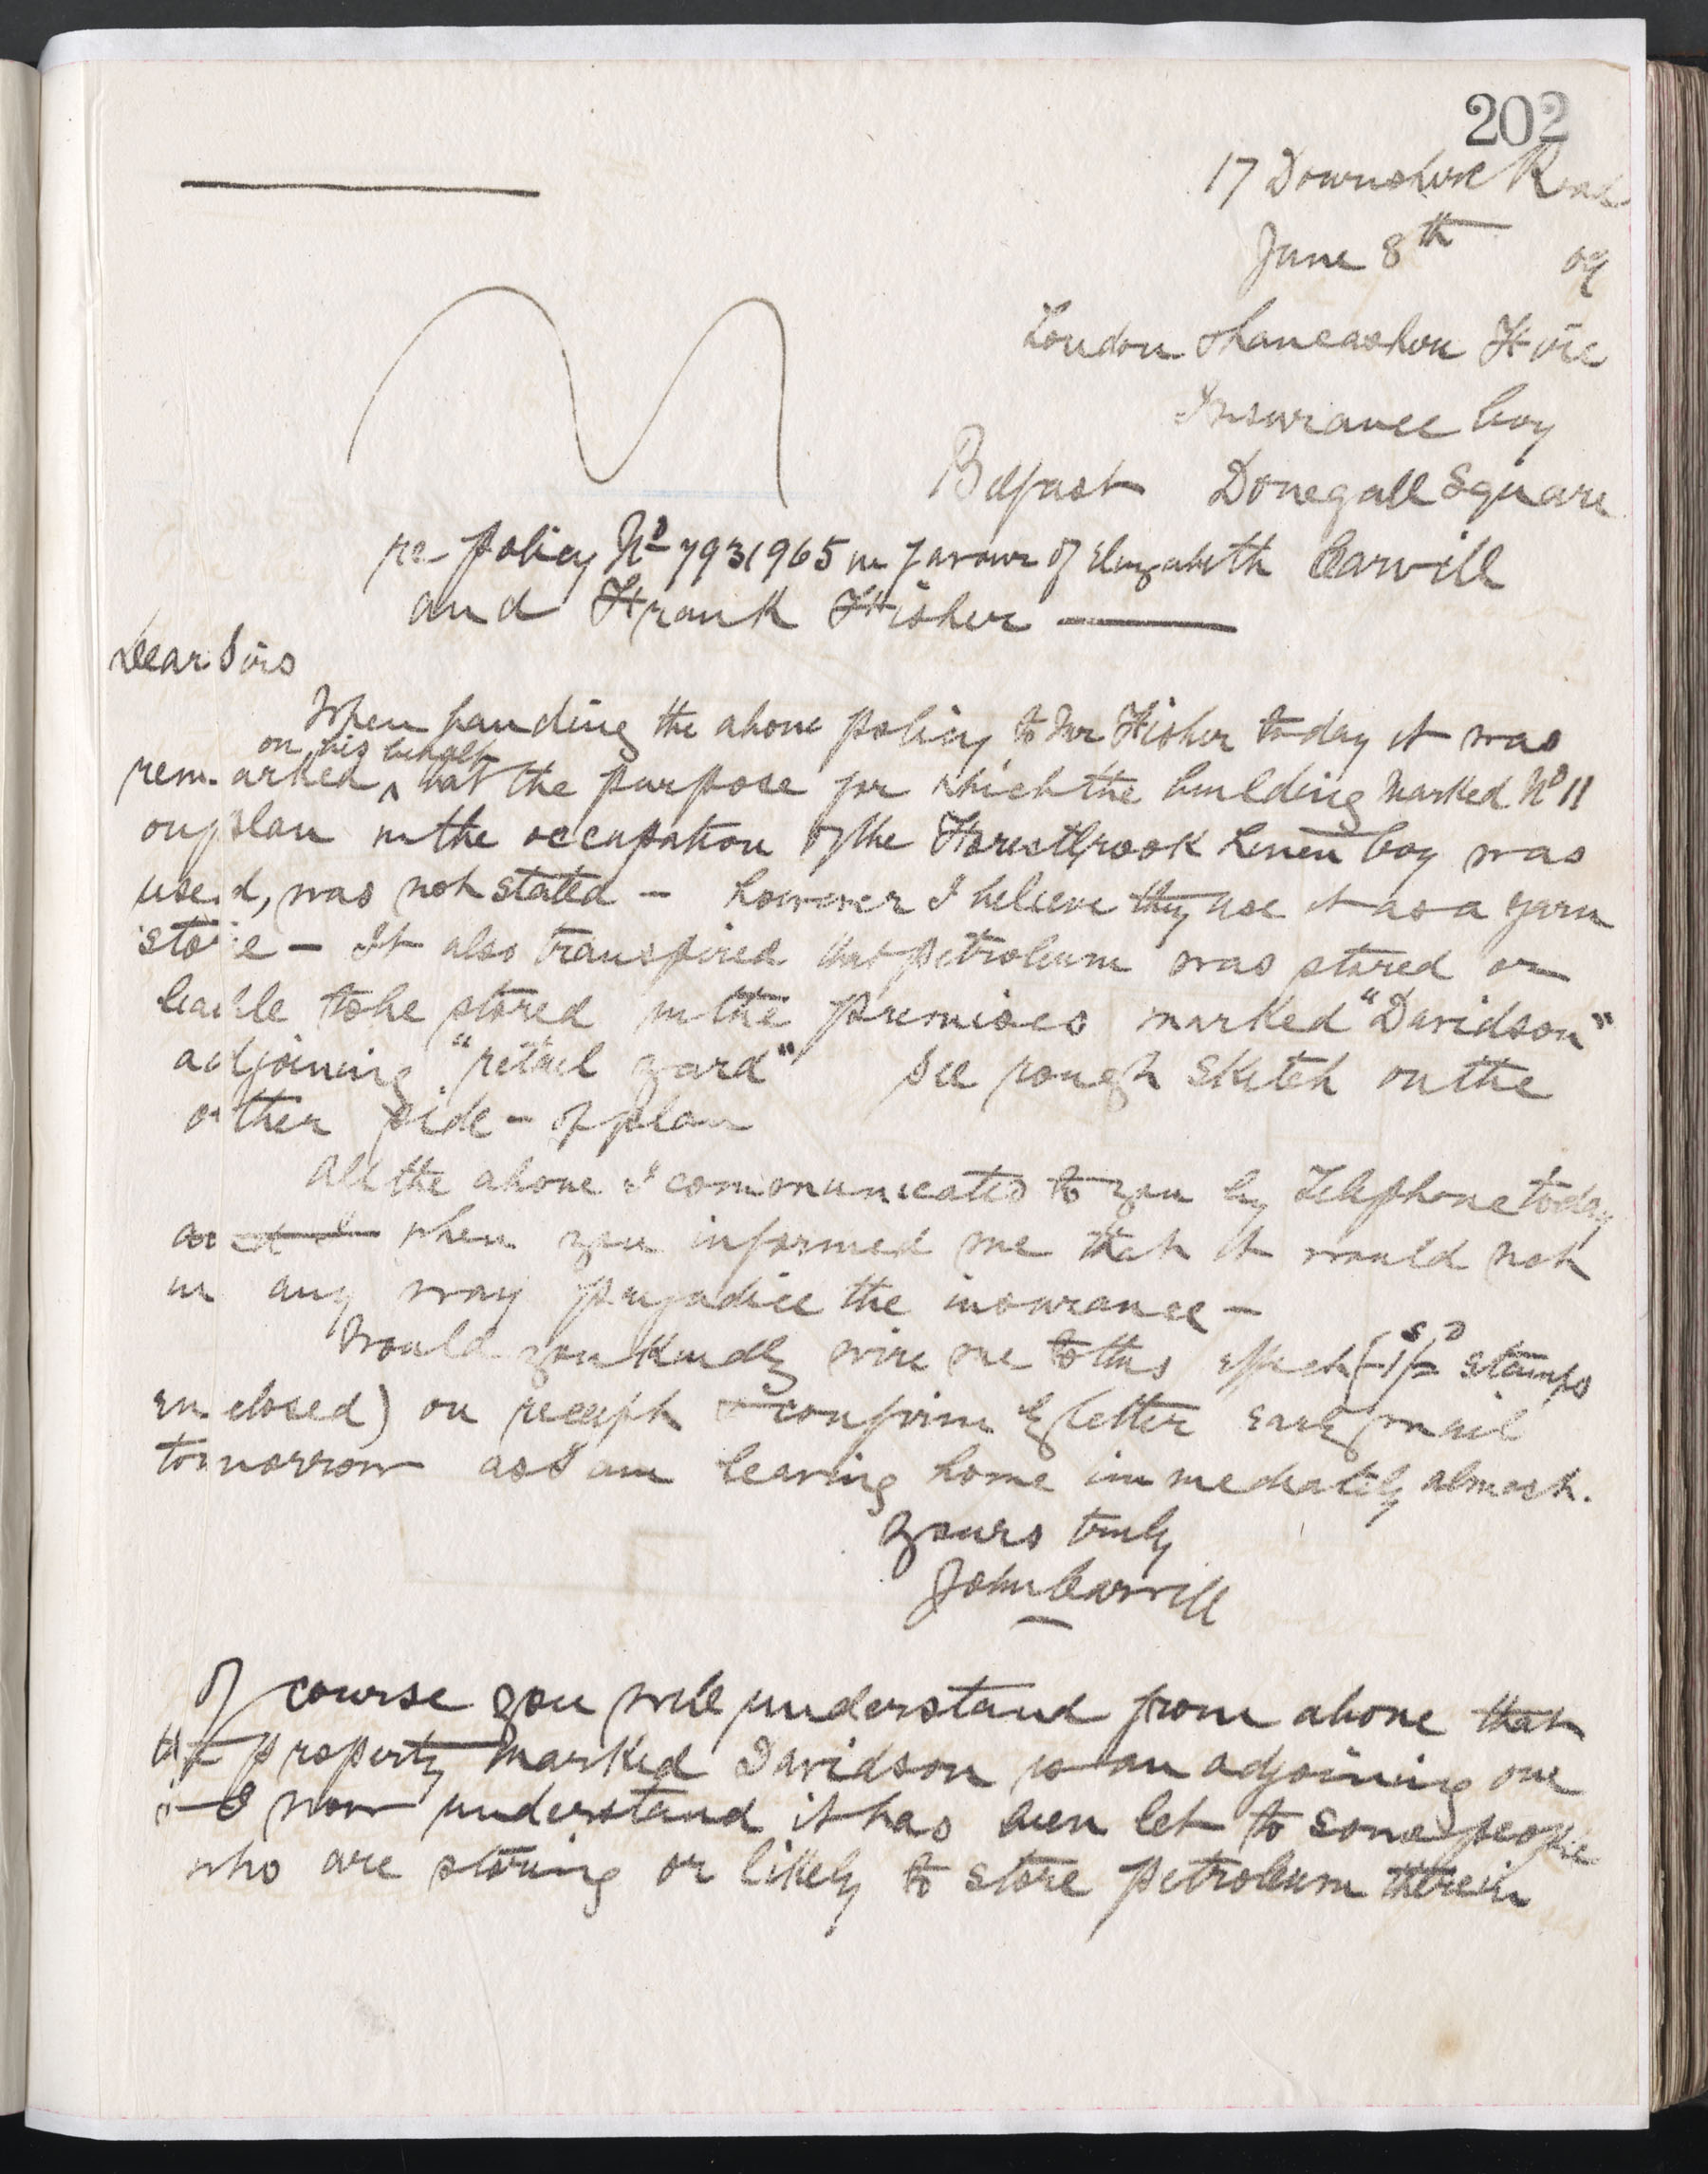 202
17 Downshire Road
June 8th 09
London & Lancashire Fire
Insurance Coy
Belfast Donegall Square
re policy No 7931965 in favour of Elizabeth Carvill
and Frank Fisher
Dear Sirs
When handing the above policy to Mr Fisher today it was
on his behalf
remarked ^ that the purpose for which the building marked No 11
on plan in the occupation of the Forestbrook Linen Coy was
used, was not stated - however I believe they use it as a yarn
store - It also transpired that petroleum was stored or
liable to be stored in the premises marked "Davidson"
adjoining "retail yard" See rough sketch on the
other side - of plan
All the above I communicated to you by Telephone today
when you informed me that it would not
in any way prejudice the insurance -
Would you kindly wire me to this effect (1/- stamps
enclosed) on receipt & confirm by letter early mail
tomorrow as I am leaving home immediately almost.
Yours truly
John Carvill
Of course you will understand from above that
the property marked Davidson is an adjoining one
& I now understand it has been let to some people
who are storing or likely to store petroleum therein